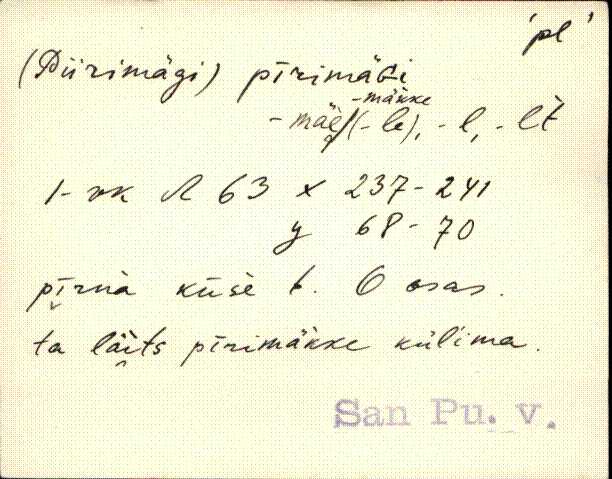 'pl'
(Piirimägi) pīrimäGi
-mäkke
-mäe/(-le), -l, -lt̀
1-vk Л 63 x 237-241
y 68-70
pīrna küsè t. O osas.
ta läits pīrimäkke külima.
San Pu. v.